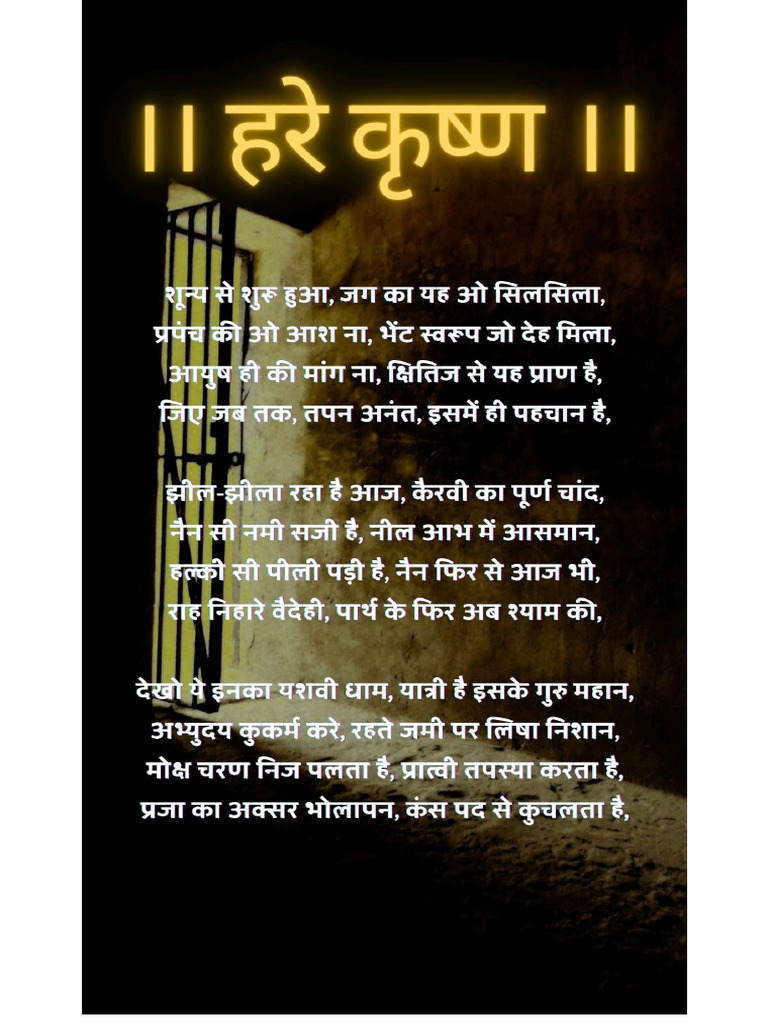 ।। हरे कृष्ण ।।
शून्य से शुरू हुआ, जग का यह ओ सिलसिला,
प्रपंच की ओ आश ना, भेंट स्वरूप जो देह मिला,
आयुष ही की मांग ना, क्षितिज से यह प्राण है,
जिए जब तक, तपन अनंत, इसमें ही पहचान है,
झील-झीला रहा है आज, कैरवी का पूर्ण चांद,
नैन सी नमी सजी है, नील आभ में आसमान,
हल्की सी पीली पड़ी है, नैन फिर से आज भी,
राह निहारे वैदेही, पार्थ के फिर अब श्याम की,
देखो ये इनका यशवी धाम, यात्री है इसके गुरु महान,
अभ्युदय कुकर्म करे, रहते जमी पर लिषा निशान,
मोक्ष चरण निज पलता है, प्रात्वी तपस्या करता है,
प्रजा का अक्सर भोलापन, कंस पद से कुचलता है,